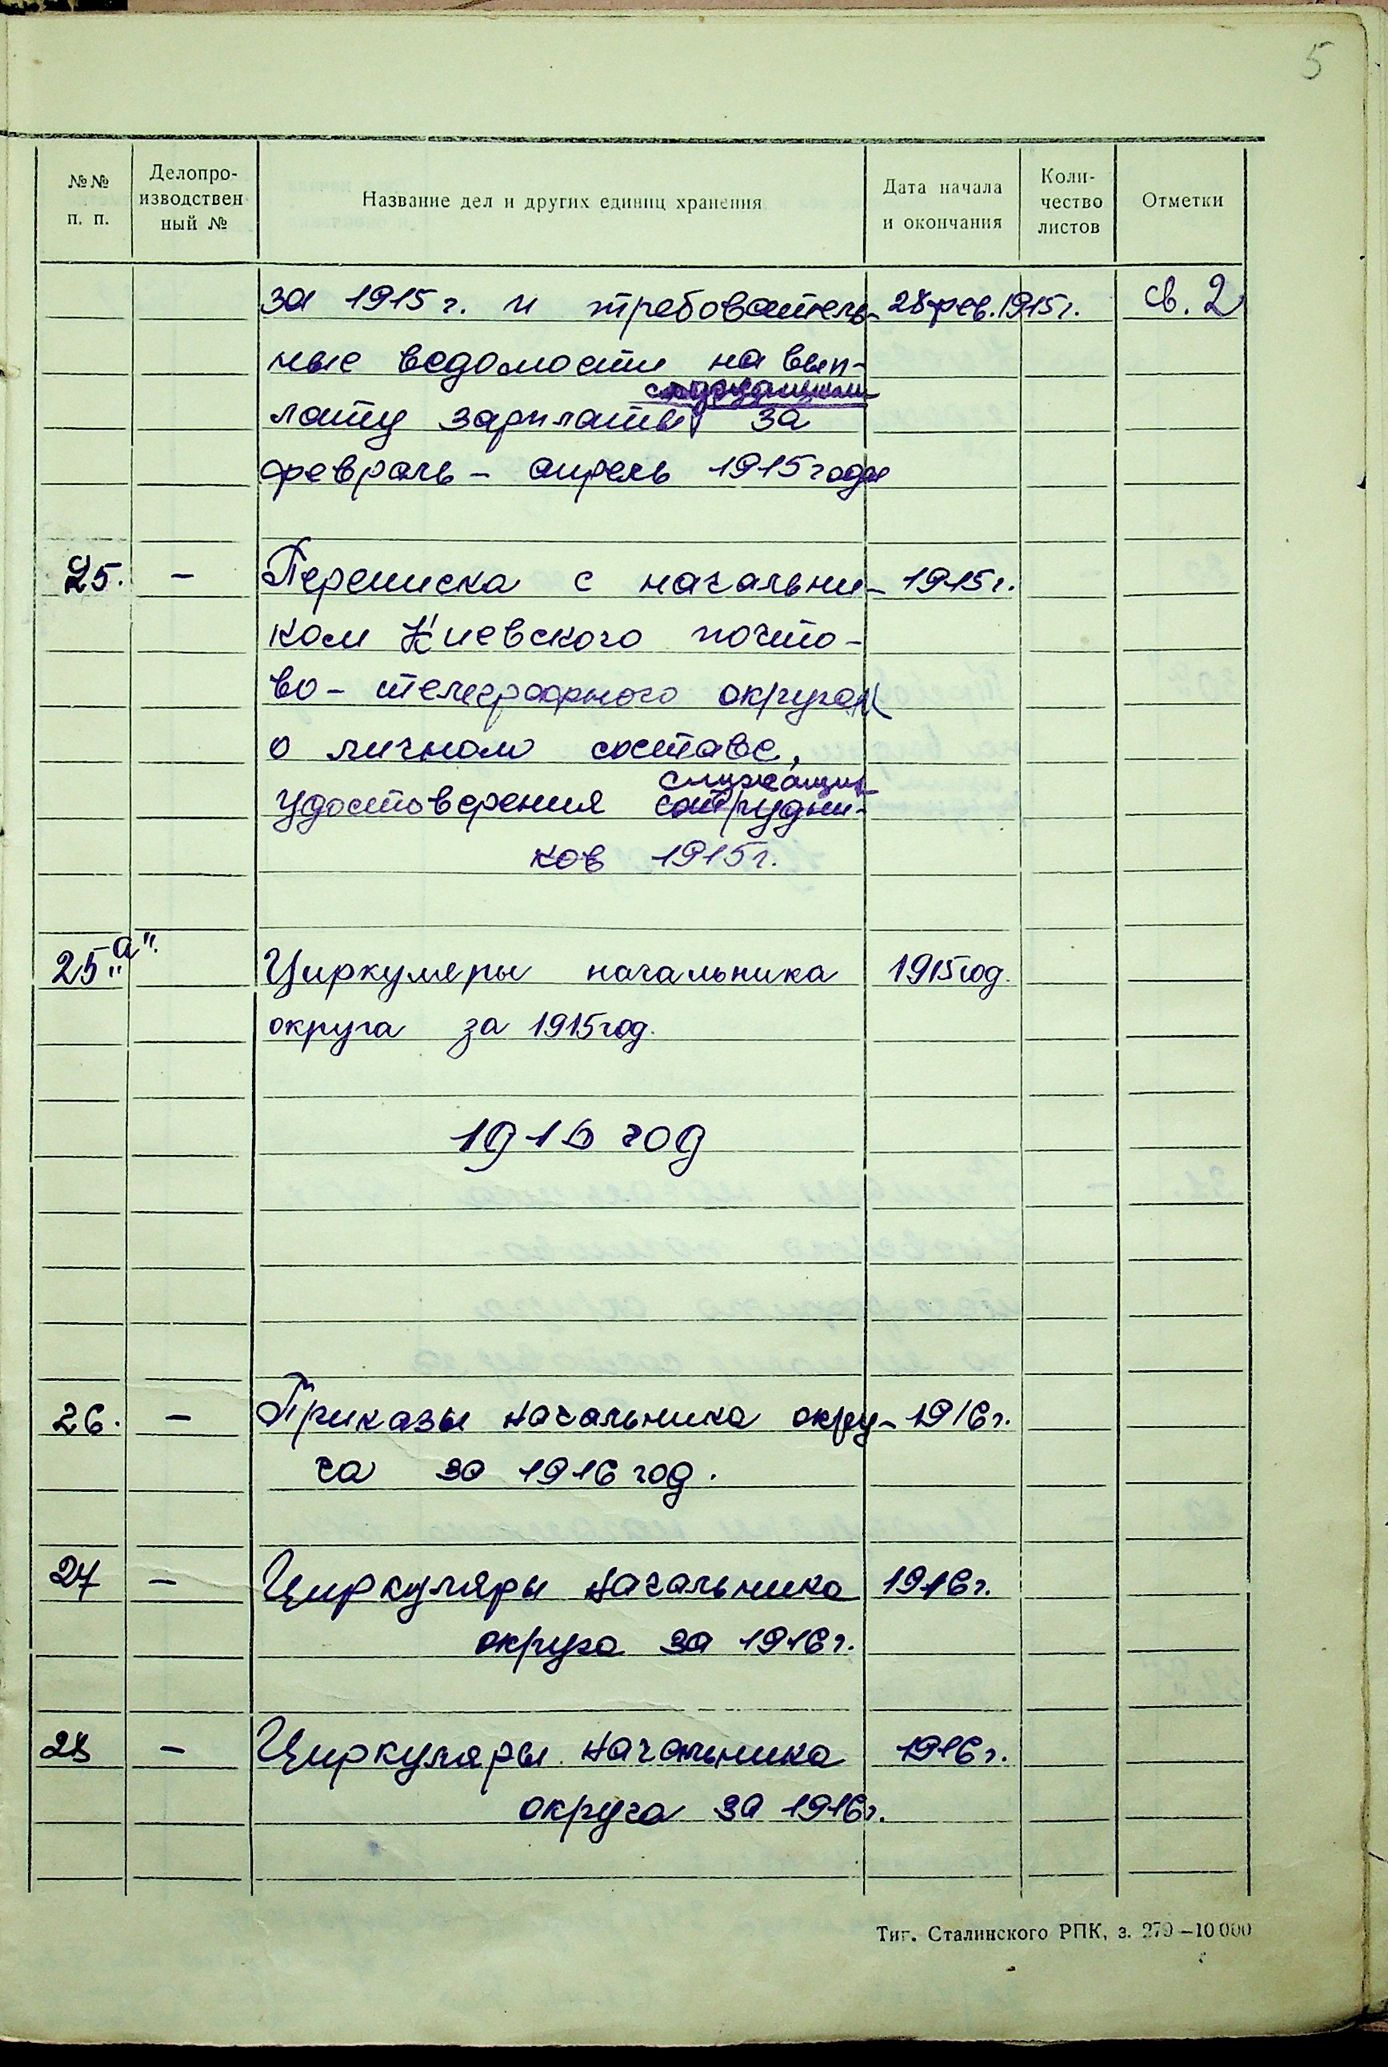 5
№№ п. п.
Делопро-
изводствен
ный №
Название дел и других единиц хранения
Дата начала
и окончания
Коли-
чество
листов
Отметки
за 1915 г. и требователь- 28 фев. 1915 г. св. 2
ные ведомости на вып-
служащим
лату зарплаты за
февраль - апрель 1915 года
25. - Переписка с начальни- 1915 г.
ком Киевского почто-
во-телеграфного округа
о личном составе,
служащих
удостоверения сотрудни-
ков 1915 г.
25 „а". Циркуляры начальника 1915 год.
округа за 1915 год.
1916 год
26. - Приказы начальника окру- 1916 г.
га за 1916 год.
27 - Циркуляры начальника 1916 г.
округа за 1916 г.
28 - Циркуляры начальника 1916 г.
округа за 1916 г.
Тиг. Сталинского РПК, з. 279—10000